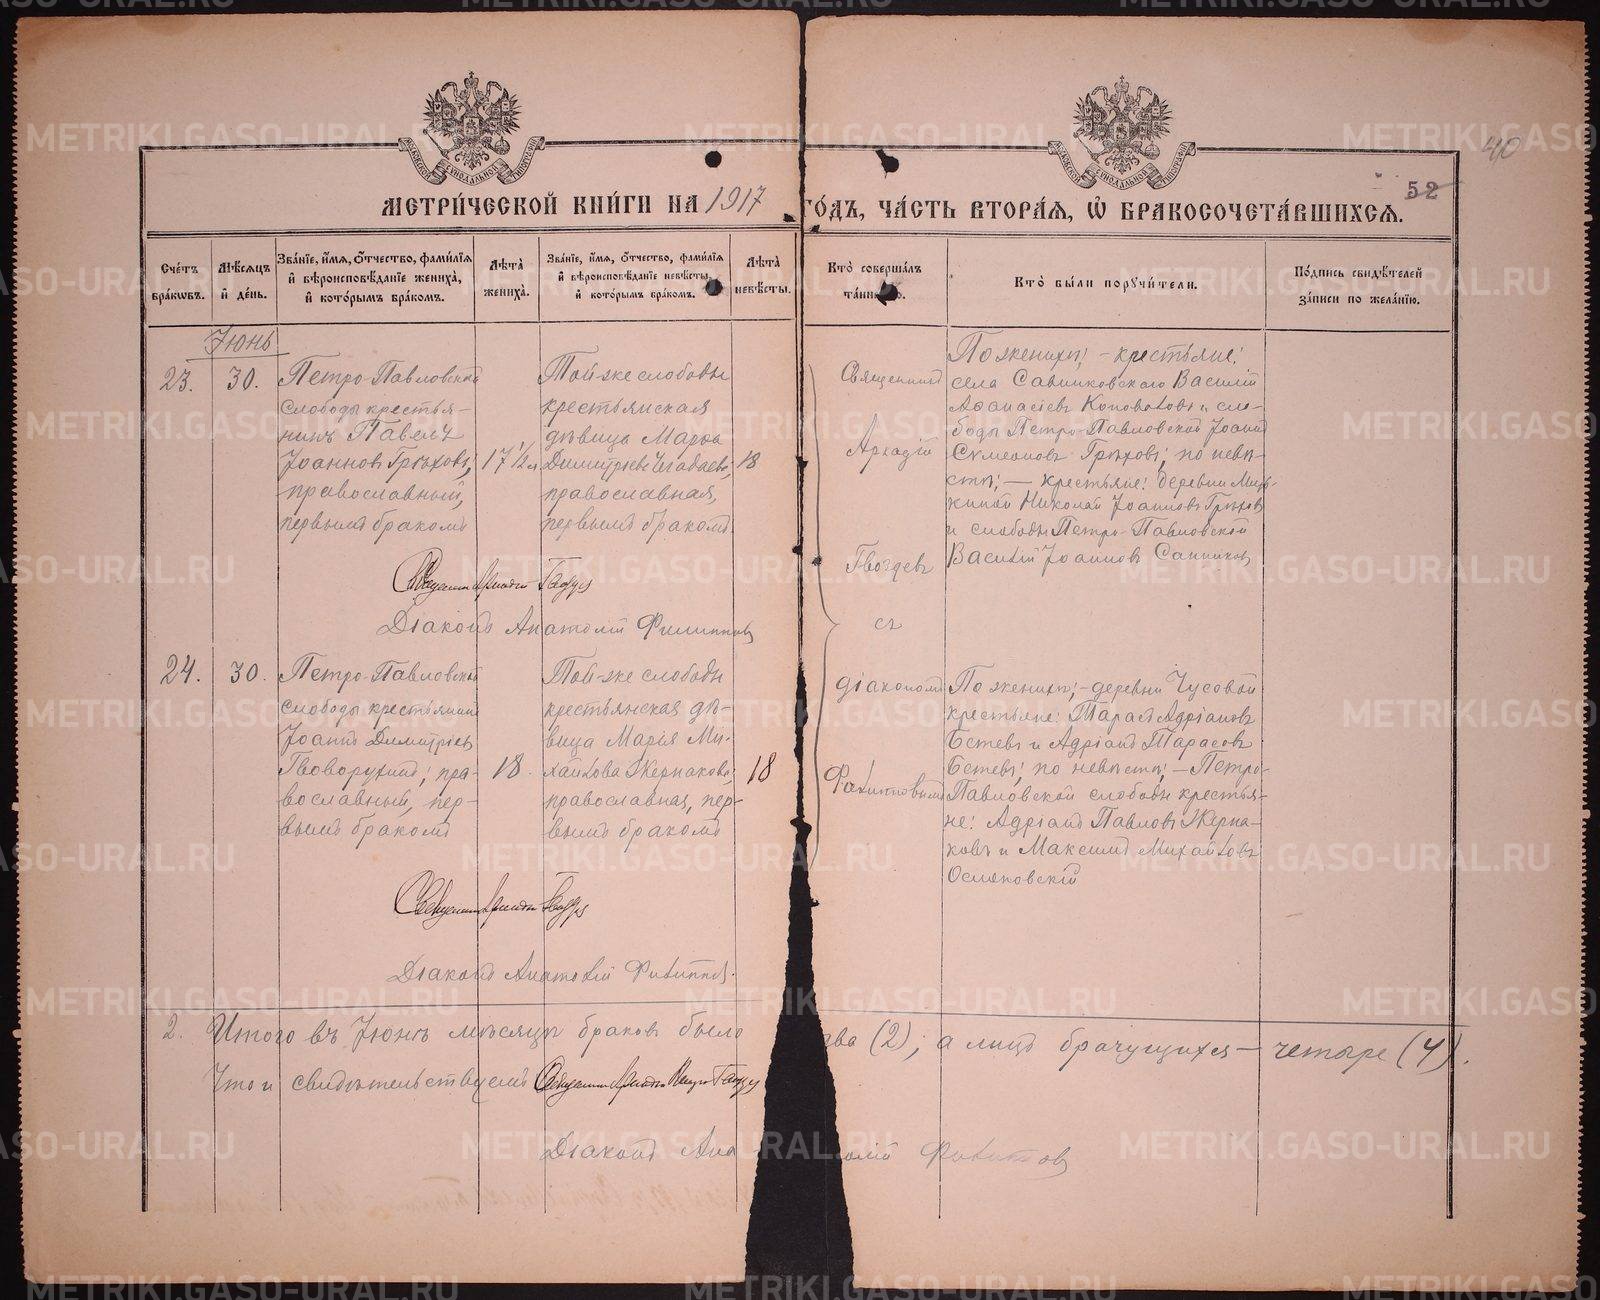 40
52
МЕТРИ́ЧЕСКОЙ КНИ́ГИ НА 1917 ГО́ДЪ, ЧА́СТЬ ВТОРА́Я, Ѡ БРАКОСОЧЕТА́ВШИХСЯ.
Сче́тъ бра́кѡвъ.
Мѣ́сяцъ и де́нь.
Зва́нїе, и́мя, ѻ́тчество, фами́лїя и вѣроисповѣ́данїе жениха̀, и кото́рымъ бра́комъ.
Лѣ́та жениха̀.
Зва́нїе, и́мя, ѻ́тчество, фами́лїя и вѣроисповѣ́данїе невѣ́сты, и кото́рымъ бра́комъ.
Лѣ́та невѣ́сты.
Кто̀ соверша́лъ
Кто̀ бы́ли поручи́тели.
По́дпись свидѣ́телей за́писи по жела́нїю.
Іюнь
23.
30.
Петро-Павловской
слободы крестья-
нинъ Павелъ
Іоанновъ Грѣховъ,
православный,
первымъ бракомъ
17½ л
Той-же слободы
крестьянская
дѣвица Марѳа
Димитріева
православная,
первымъ бракомъ.
18
Священникъ
Аркадій
Гвоздевъ
съ
діакономъ
Филипповымъ
По женихѣ: - крестьяне:
села Савинковскаго Василій
Аѳанасіевъ Коноваловъ и сло-
боды Петро-Павловской Іоаннъ
Сумеоновъ Грѣховъ; по невѣ-
стѣ: — крестьяне: деревни
Николай Іоанновъ Грѣховъ
и слободы Петро-Павловской
Василій Іоанновъ Санниковъ
Священникъ Аркадій Гвоздевъ
Діаконъ Анатолій Филипповъ
24.
30.
Петро-Павловской
слободы крестьянинъ
Іоаннъ Димитріевъ
Говорухинъ; пра-
вославный, пер-
вымъ бракомъ
18.
Той-же слободы
крестьянская дѣ-
вица Марія Ми-
хайлова Жернакова;
православная, пер-
вымъ бракомъ
18
По женихѣ: - деревни Чусовой
крестьяне: Тарасъ Адріановъ
Естевъ и Адріанъ Тарасовъ
Естевъ; по невѣстѣ: — Петро-
Павловской слободы крестья-
не: Адріанъ Павловъ Жерна-
ковъ и Максимъ Михайловъ
Осляповскій
Священникъ Аркадій Гвоздевъ
Діаконъ Анатолій Филипповъ.
2. Итого въ Іюнѣ мѣсяцѣ браковъ было два (2); а лицъ брачущихся — четыре (4).
Что и свидѣтельствуемъ Священникъ Аркадій Гвоздевъ
Діаконъ Анатолій Филипповъ
METRIKI.GASO-URAL.RU